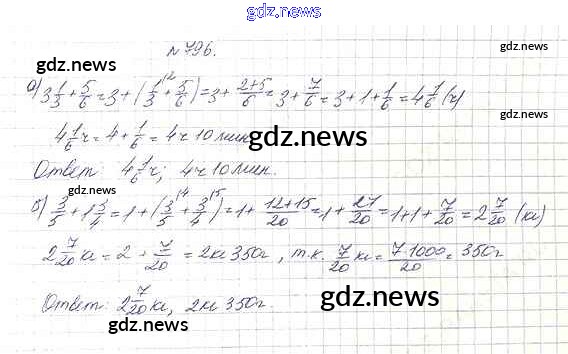 gdz.net
№796.
gdz.net
а) 3 1/3 + 5/6 = 3 + (1/3 \2 + 5/6) = 3 + (2+5)/6 = 3 + 7/6 = 3 + 1 + 1/6 = 4 1/6 (ч)
gdz.net
4 1/6 ч = 4 + 1/6 = 4ч 10 мин.
gdz.net
Ответ: 4 1/6 ч; 4ч 10 мин.
gdz.net
б) 3/5 + 1 3/4 = 1 + (3/5 \4 + 3/4 \5) = 1 + (12+15)/20 = 1 + 27/20 = 1 + 1 + 7/20 = 2 7/20 (кг)
gdz.net
2 7/20 кг = 2 + 7/20 = 2кг 350г, т.к. 7/20 кг = (7·1000)/20 = 350г
gdz.net
Ответ: 2 7/20 кг, 2кг 350г.
gdz.net
gdz.net
gdz.net